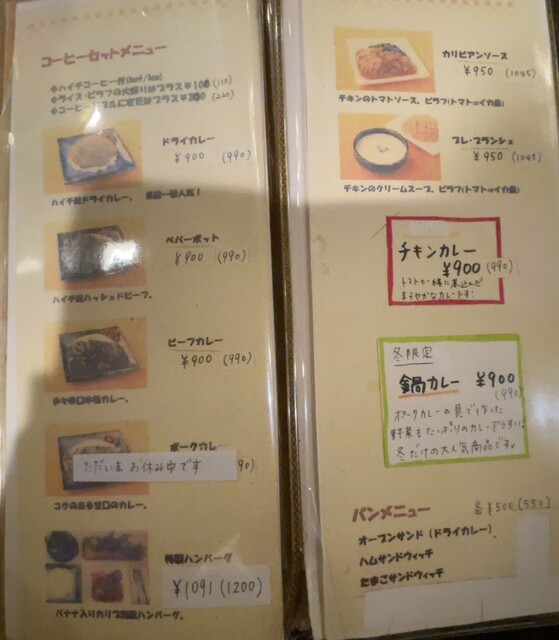 コーヒーセットメニュー
◆ハイチコーヒー付(hot/ice)
◆ライス・ピラフの大盛りはプラス¥100 (110)
ドライカレー
¥900 (990)
ハイチ風ドライカレー。 当店一番人気！
ペパーポット
¥900 (990)
ハイチ風ハッシュドビーフ。
ビーフカレー
¥900 (990)
多々辛口本格カレー。
ポークカレー
ただいま お休み中です
90)
コクのある甘口のカレー。
特製ハンバーグ
¥1091 (1200)
バナナ入りカリブ風ハンバーグ。
カリビアンソース
¥950 (1045)
チキンのトマトソース。ピラフ(トマトorイカ墨)
ブレ・ブランシェ
¥950 (1045)
チキンのクリームスープ。ピラフ(トマトorイカ墨)
チキンカレー
¥900 (990)
トマトと一緒に煮込んだ
まろやかなカレーです!
冬限定
鍋カレー ¥900
(990)
ポークカレーの具で作った
野菜もたっぷりのカレーぞうすい!
冬だけの大人気商品です。
パンメニュー 各¥500 (550)
オープンサンド (ドライカレー)
ハムサンドウィッチ
たまごサンドウィッチ